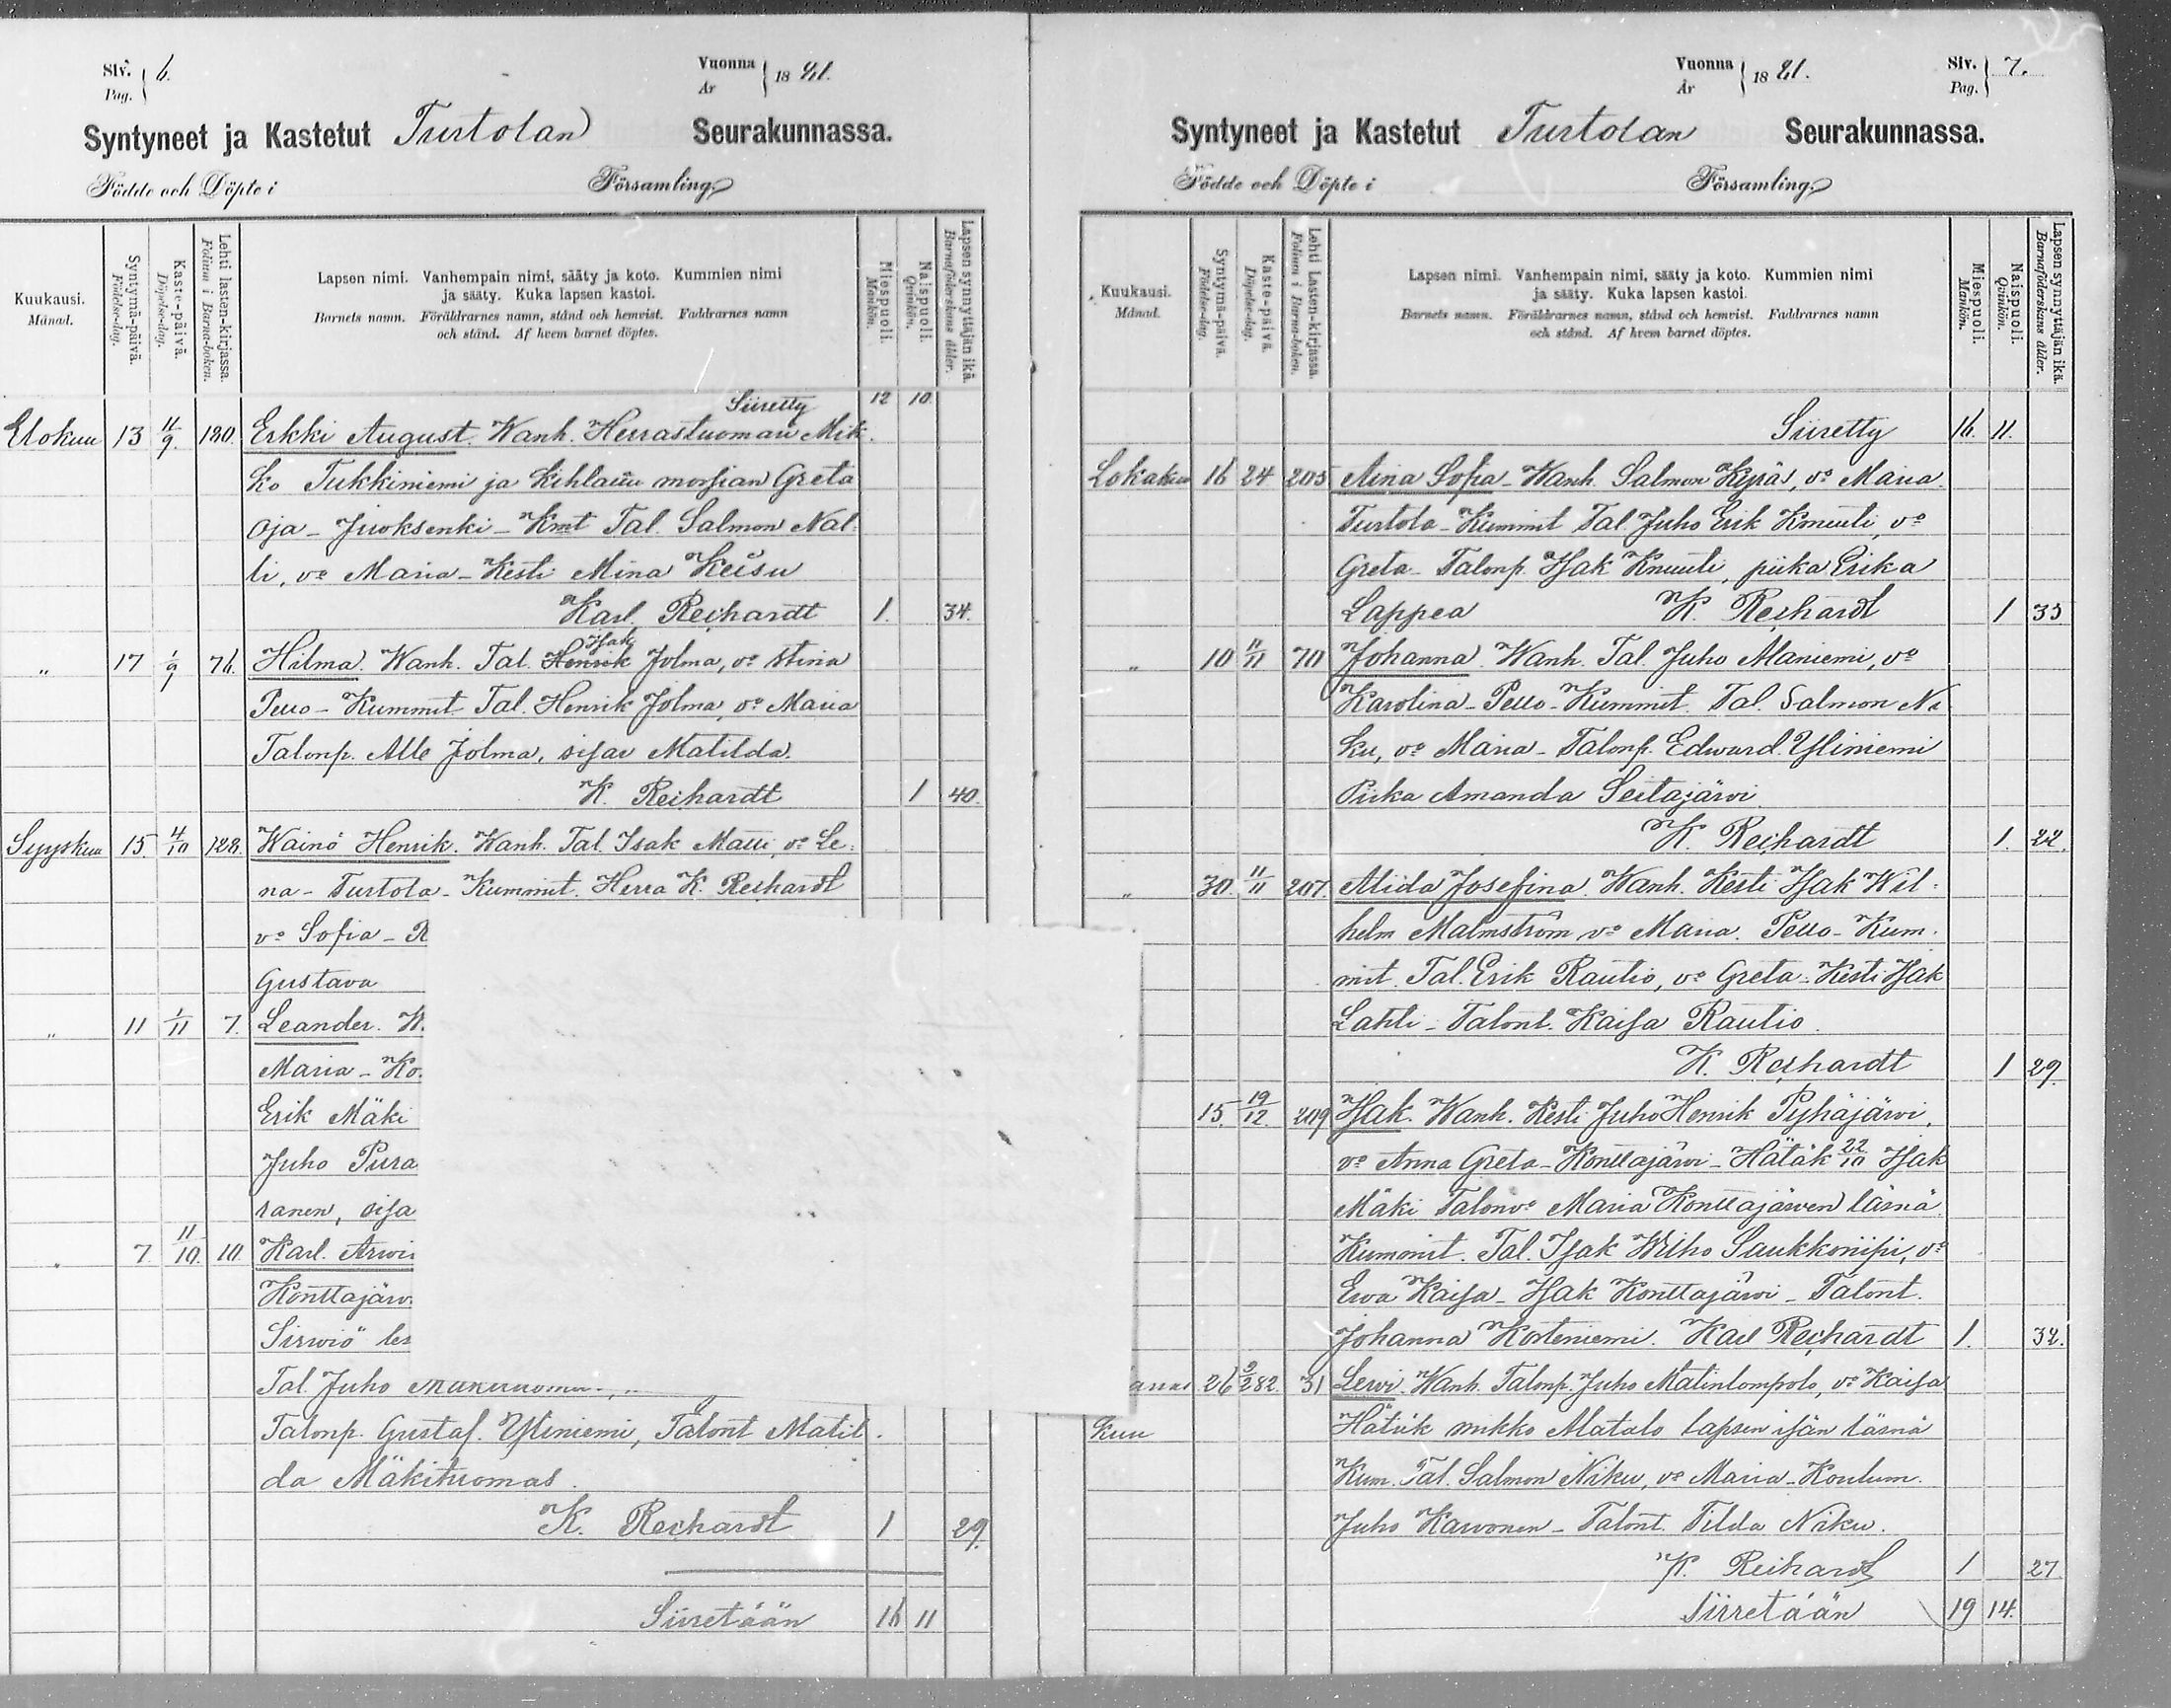 Siv. 6.
Pag.
Vuonna 1881.
År
Syntyneet ja Kastetut Turtolan Seurakunnassa.
Födde och Döpte i Församling.
Kuukausi.
Månad.
Syntymä-päivä.
Födelse-dag.
Kaste-päivä.
Döpelse-dag.
Lehti lasten-kirjassa.
Folium i Barna-boken.
Lapsen nimi. Vanhempain nimi, sääty ja koto. Kummien nimi
ja sääty. Kuka lapsen kastoi.
Barnets namn. Föräldrarnes namn, stånd och hemvist. Faddrarnes namn
och stånd. Af hvem barnet döptes.
Miespuoli.
Mankön.
Naispuoli.
Qvinkön.
Lapsen synnyttäjän ikä.
Barnaföderskans ålder.
Siiretty 12 10.
Elokuu 13 11/9. 180. Erkki August. Wanh. Herrastuoman Mik
ko Tukkiniemi ja kihlattu morsian Greta
Oja - Juoksenki - Kmt Tal. Salmon Nal-
li, vo Maria - Kesti Mina Keisu
Karl Rechardt 1. 34.
" 17 1/9 76. Hilma. Wanh. Tal. Henrik Isak Jolma, vo Stina
Pello - Kummit Tal. Henrik Jolma, vo Maria
Talonp. Alle Jolma, sisar Matilda.
K. Rechardt 1 40.
Syyskuu 15. 4/10 128. Wäinö Henrik. Wanh. Tal. Isak Matti, vo Le-
na - Turtola - Kummit. Herra K. Rechardt
vo Sofia - R
Gustava
" 11 1/11 7. Leander. W.
Maria - Ko.
Erik Mäki
Juho Pura
ranen, sisa
" 7. 11/10. 10. Karl Arwi
Konttajärv.
Sirviö les
Tal. Juho
Talonp. Gustaf Yliniemi, Talont Matil-
da Mäkituomas.
K. Rechardt 1 29.
Siiretään 16 11
Vuonna 1881.
År
Siv. 7.
Pag.
Syntyneet ja Kastetut Turtolan Seurakunnassa.
Födde och Döpte i Församling.
Kuukausi.
Månad.
Syntymä-päivä.
Födelse-dag.
Kaste-päivä.
Döpelse-dag.
Lehti Lasten-kirjassa.
Folium i Barna-boken.
Lapsen nimi. Vanhempain nimi, sääty ja koto. Kummien nimi
ja sääty. Kuka lapsen kastoi.
Barnets namn. Föräldrarnes namn, stånd och hemvist. Faddrarnes namn
och stånd. Af hvem barnet döptes.
Miespuoli.
Mankön.
Naispuoli.
Qvinkön.
Lapsen synnyttäjän ikä.
Barnaföderskans ålder.
Siiretty 16. 11.
Lokakuu 16 24 205 Aina Sofia - Wanh. Salmon Kyrös, vo Maria
Turtola - Kummit Tal. Juho Erik Knuuti, vo
Greta - Talonp. Isak Knuuti, piika Erika
Lappea K. Rechardt 1 35
" 10 11/11 70 Johanna. Wanh. Tal. Juho Maniemi, vo
Karolina - Pello - Kummit. Tal. Salmon Ni
ku, vo Maria - Talonp. Edward Yliniemi
Piika Amanda Seitajärvi
K. Rechardt 1. 22.
" 30. 11/11 207. Alida Josefina. Wanh. Kesti Isak Wil-
helm Malmström vo Maria. Pello - Kum-
mit. Tal. Erik Rautio, vo Greta - Kesti Isak
Lahti - Talont. Kaisa Rautio.
K. Rechardt 1 29.
15. 19/12. 209 Isak. Wanh. Kesti Juho Henrik Pyhäjärvi,
vo Anna Greta - Konttajärvi - Hätäk 22/10 Isak
Mäki Talonvo Maria Konttajärven läsnä
Kummit. Tal. Isak Wilho Saukkoriipi, vo
Ewa Kaisa - Isak Konttajärvi - Talont.
Johanna Korteniemi. Karl Rechardt 1. 32.
26 3/2 82. 31 Lewi. Wanh. Talonp. Juho Matinlompolo, vo Kaisa
kuu Hätäk mikko Matalo lapsen isän läsnä
Kum. Tal. Salmon Niku, vo Maria - Koulum.
Juho Karvonen - Talont. Tilda Niku.
K. Rechardt 1 27
Siiretään 19 14.